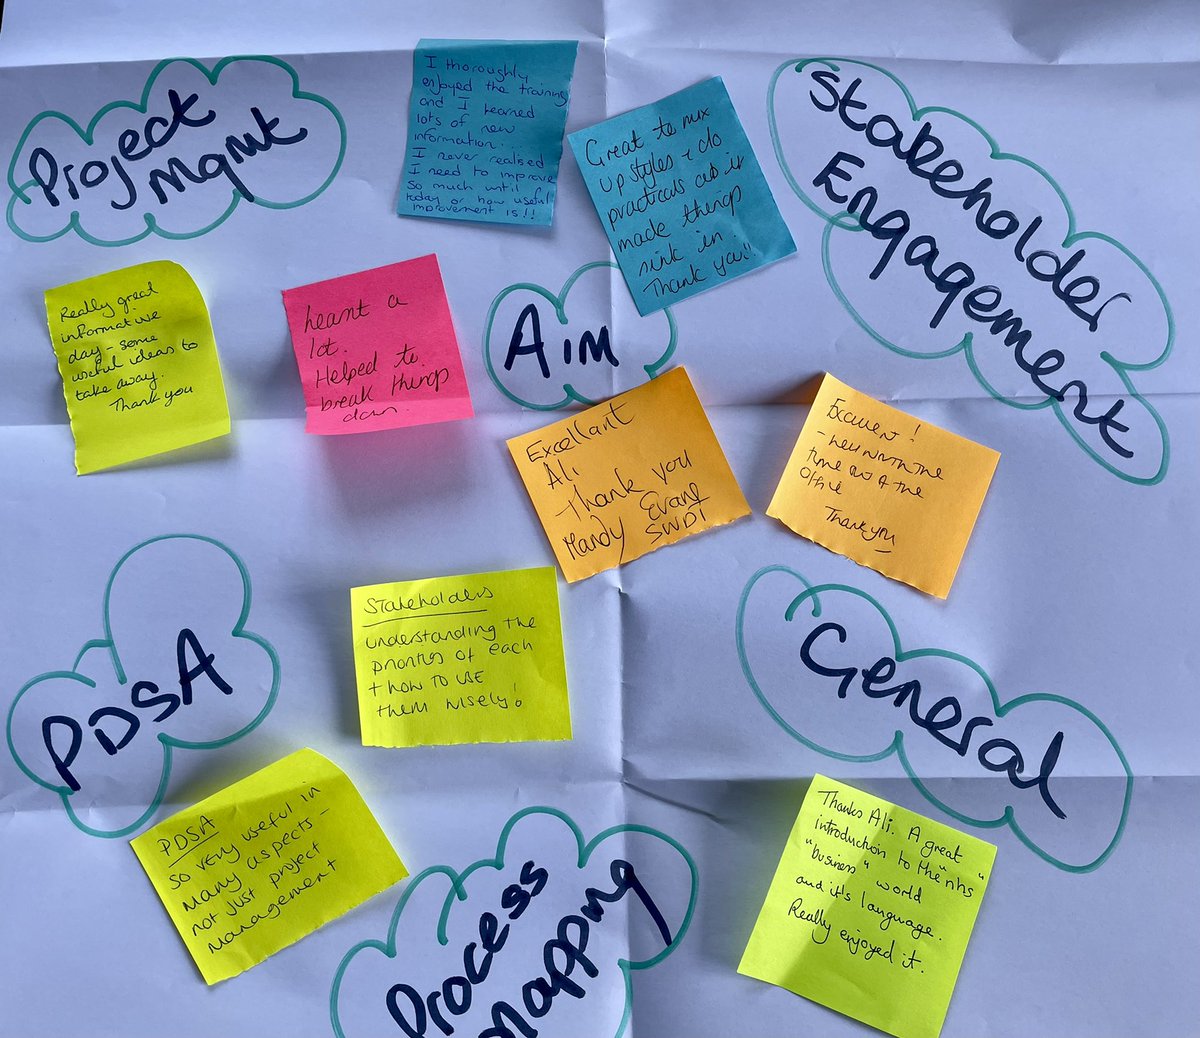 Project
Mgmt
I thoroughly
enjoyed the training
and I learned
lots of new
information...
I never realised
I need to improve
so much until
today or how useful
improvement is!!
Great to mix
up styles + do
practicals as it
made things
sink in
Thank you!!
Stakeholder
Engagement
Really great
informative
day - some
useful ideas to
take away.
Thank you
learnt a
lot.
Helped to
break things
down.
Aim
Excellant
Ali
Thank you
Mandy Evans
SWDT
Excellent!
- well worth the
time out of the
office
Thankyou
Stakeholders
understanding the
priorities of each
+ how to use
them wisely!
PDSA
General
PDSA
so very useful in
many aspects -
not just project
management
Process
Mapping
Thanks Ali. A great
introduction to the "nhs"
"business" world
and it's language.
Really enjoyed it.